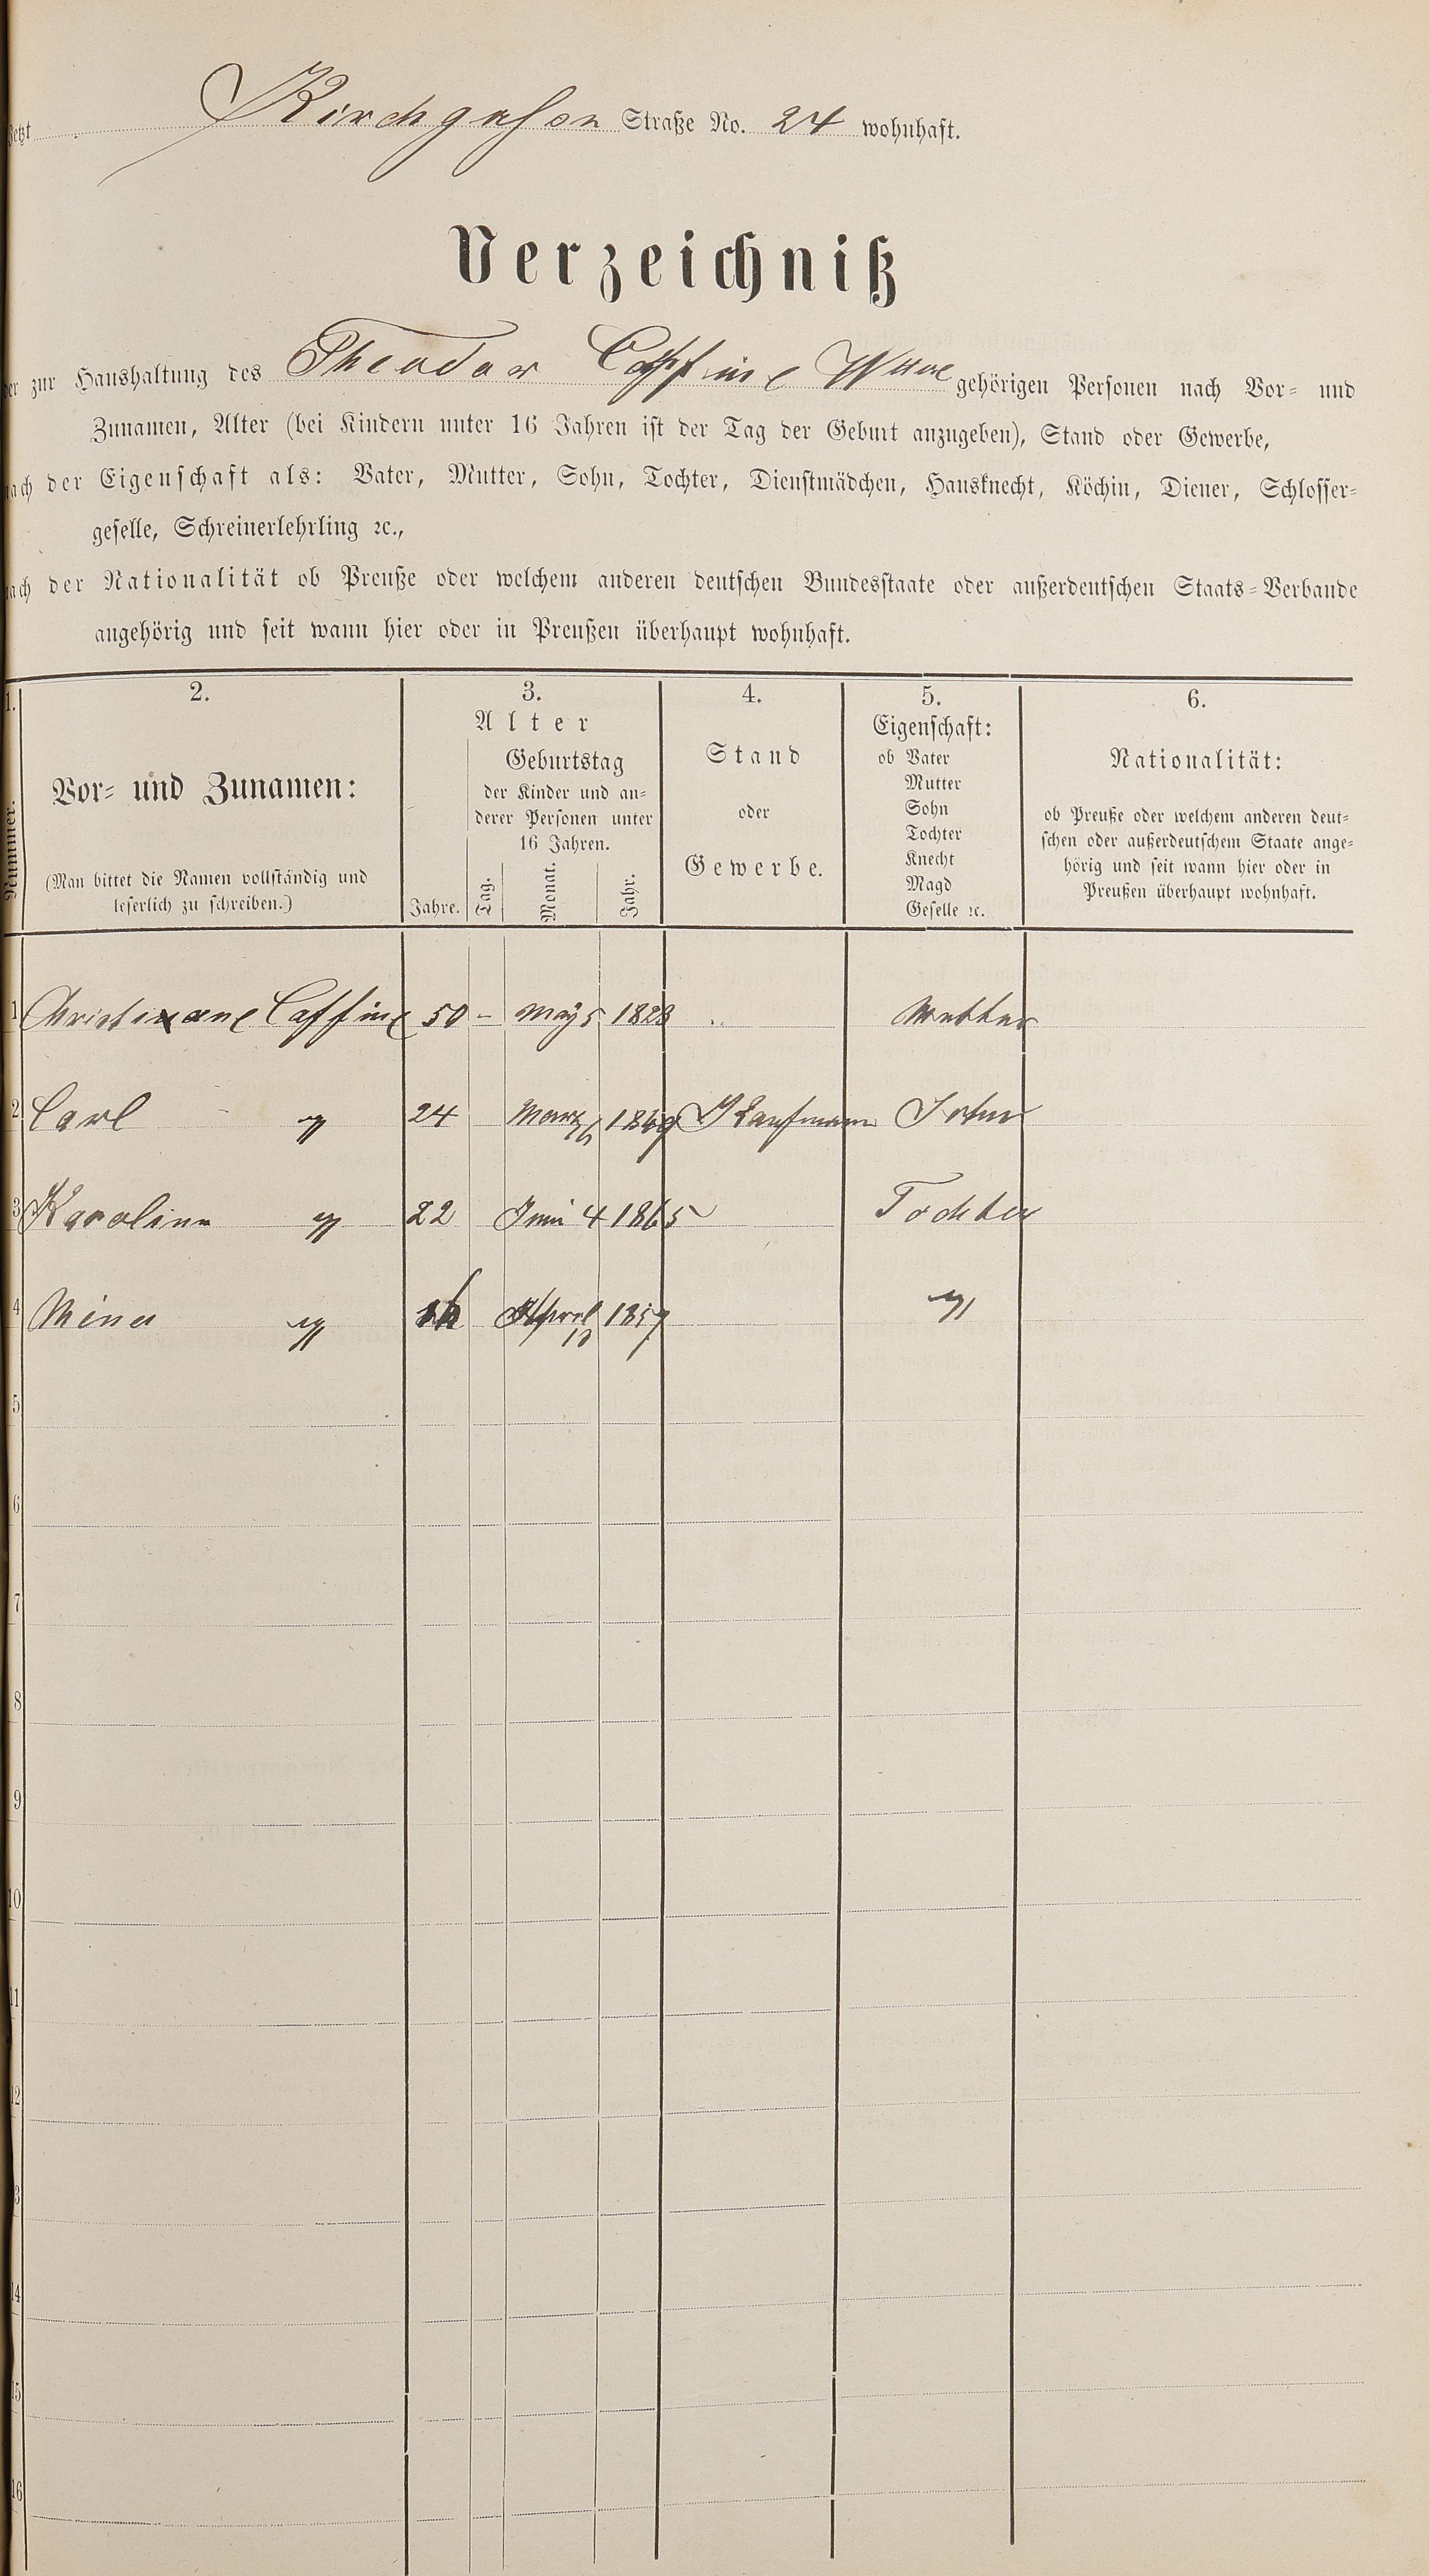 Jetzt Kirchgasse Straße No. 24 wohnhaft.
Verzeichniß
der zur Haushaltung des Theodor Caffine Wwe gehörigen Personen nach Vor- und
Zunamen, Alter (bei Kindern unter 16 Jahren ist der Tag der Geburt anzugeben), Stand oder Gewerbe,
nach der Eigenschaft als: Vater, Mutter, Sohn, Tochter, Dienstmädchen, Hausknecht, Köchin, Diener, Schlosser-
geselle, Schreinerlehrling ꝛc.,
nach der Nationalität ob Preuße oder welchem anderen deutschen Bundesstaate oder außerdeutschen Staats-Verbande
angehörig und seit wann hier oder in Preußen überhaupt wohnhaft.
1. 2. 3. 4. 5. 6.
Nummer.
Vor- und Zunamen:
(Man bittet die Namen vollständig und
leserlich zu schreiben.)
Alter
Jahre.
Geburtstag
der Kinder und an-
derer Personen unter
16 Jahren.
Tag. Monat. Jahr.
Stand
oder
Gewerbe.
Eigenschaft:
ob Vater
Mutter
Sohn
Tochter
Knecht
Magd
Geselle ꝛc.
Nationalität:
ob Preuße oder welchem anderen deut-
schen oder außerdeutschem Staate ange-
hörig und seit wann hier oder in
Preußen überhaupt wohnhaft.
1 Christiane Caffine 50 - May 5 1828 Mutter
2 Carl " 24 März Kaufmann Sohn
3 Karoline " 22 Juni 4 1865 Tochter
4 Mina " April 10 1857 "
5
6
7
8
9
10
11
12
13
14
15
16